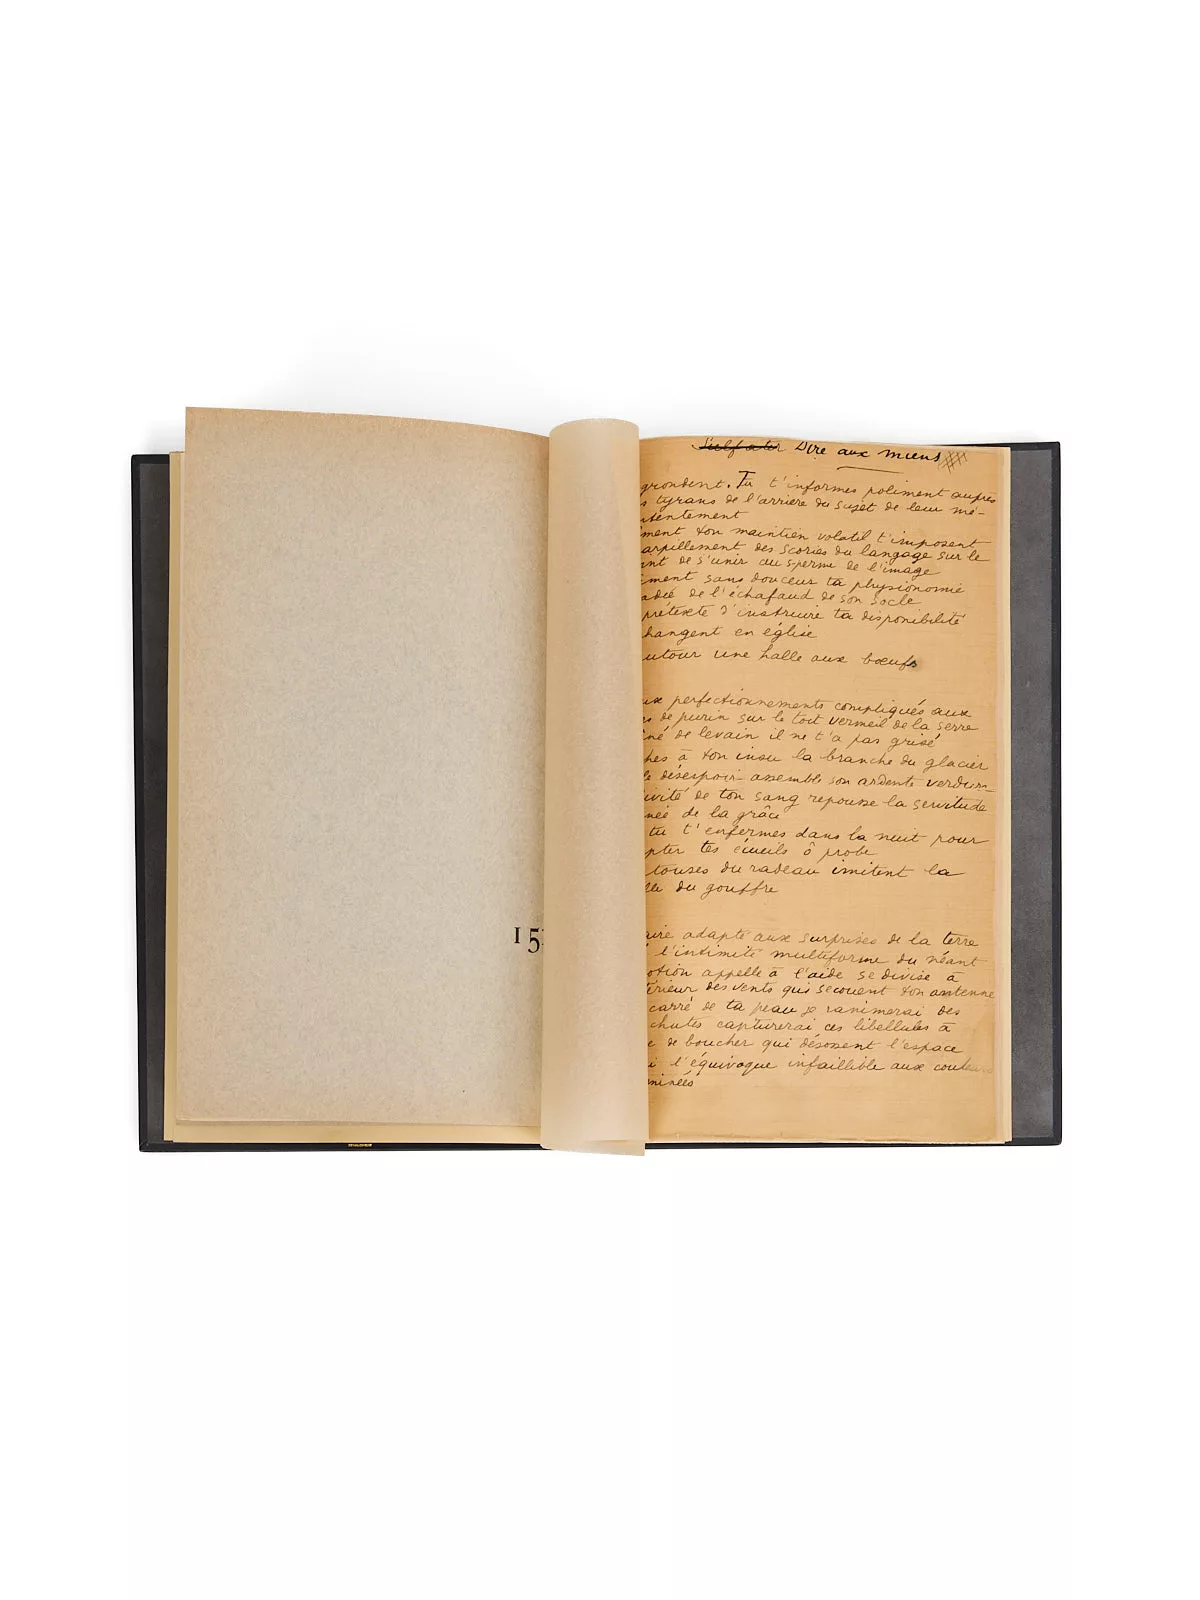 15
Sulfater Dire aux miens
grondent. Tu t'informes poliment auprès
s tyrans de l'arrière du sujet de leur mé-
ntentement
ment ton maintien volatil t'imposent
arpillement des scories du langage sur le
nt de s'unir au sperme de l'image
ment sans douceur ta physionomie
adié de l'échafaud de son socle
prétexte d'instruire ta disponibilité
hangent en église
utour une halle aux bœufs
ux perfectionnements compliqués aux
rs de purin sur le toit vermeil de la serre
né de levain il ne t'a pas grisé
hes à ton insu la branche du glacier
le désespoir assemble son ardente verdure
ivité de ton sang repousse la servitude
née de la grâce
tu t'enfermes dans la nuit pour
pter tes écueils ô probe
touses du radeau imitent la
lle du gouffre
aire adapte aux surprises de la terre
l'intimité multiforme du néant
otion appelle à l'aide se divise à
térieur des vents qui secouent ton antenne
carré de ta peau je ranimerai des
chutes capturerai ces libellules à
e de boucher qui désossent l'espace
i l'équivoque infaillible aux couleurs
minées